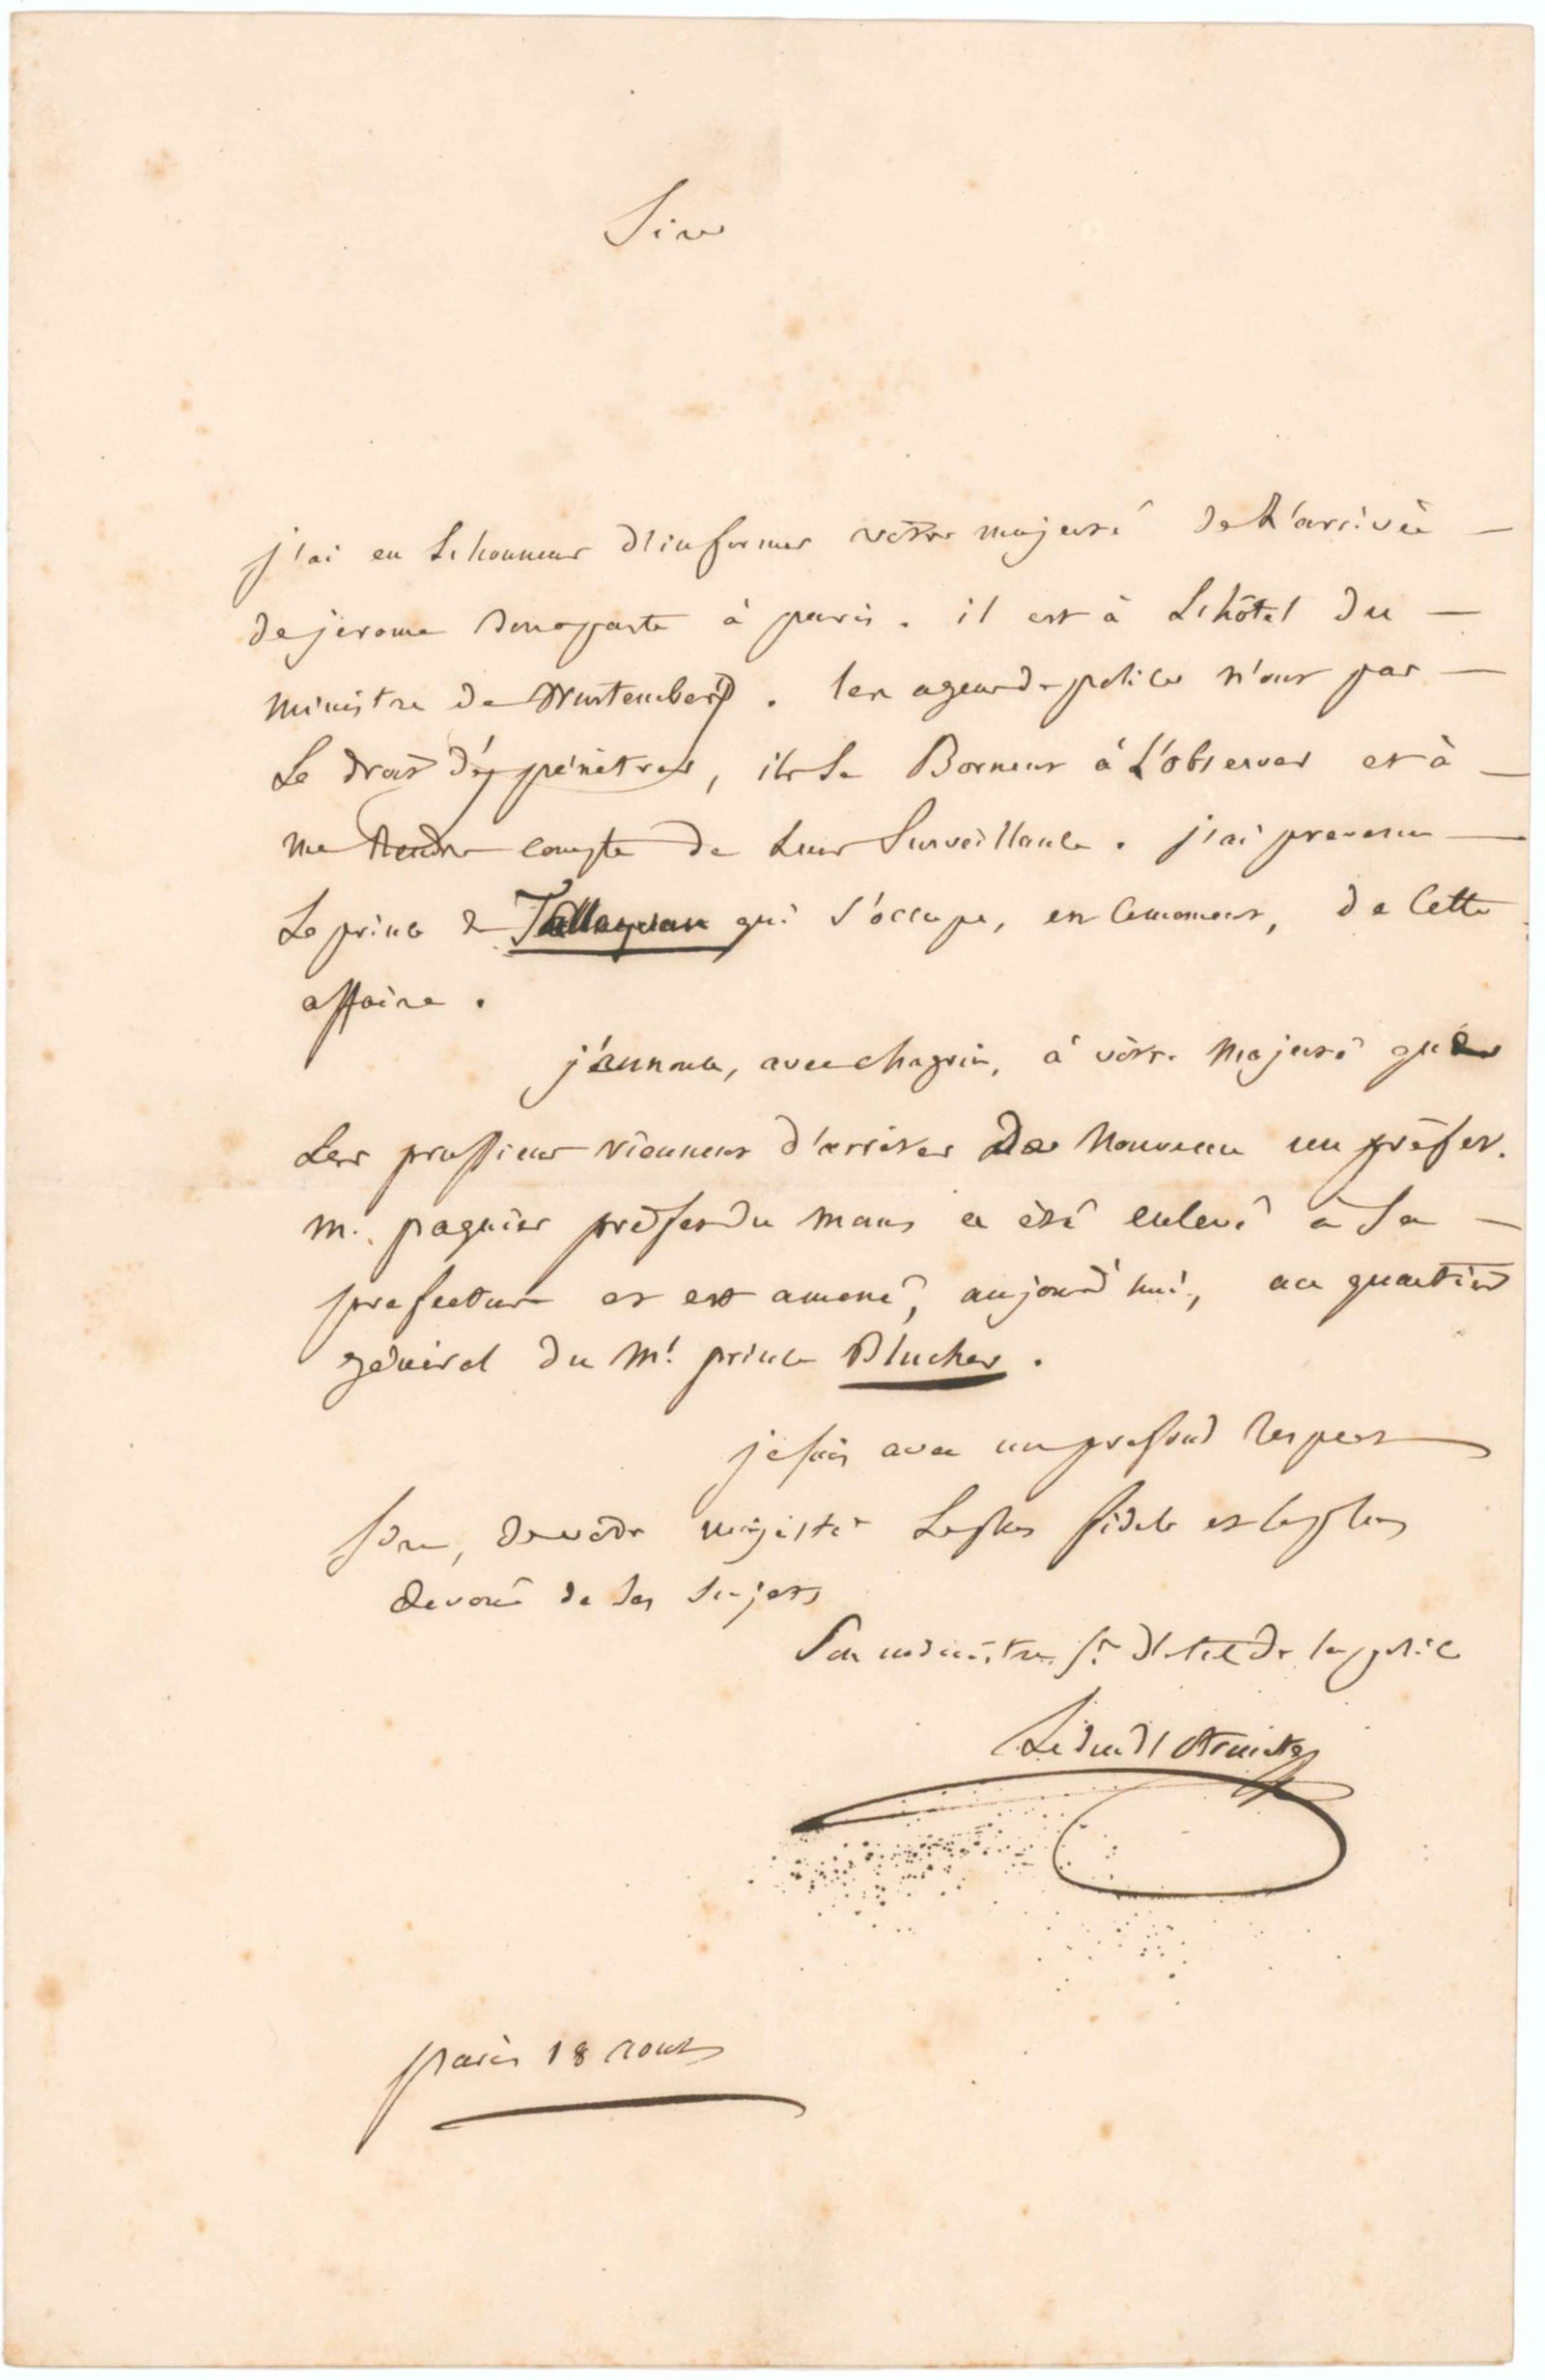 Sire
j'ai eu l'honneur d'informer votre majesté de l'arrivée
de jerome Bonaparte à paris. il est à l'hôtel du
ministre de Wurtemberg. les agens de police n'ont pas
le droit d'y pénétrer, ils se Bornent à l'observer et à
me Rendre compte de leur Surveillance. j'ai prevenu
le prince de Talleyran qui s'occupe, en ce moment, de cette
affaire.
j'annonce, avec chagrin, à vôtre Majesté que
les prussiens viennent d'arrêter De Nouveau un préfet.
M. paquier préfet du mans a été enlevé à sa
prefecture et est amené, aujourd'hui, au quartier
général du M.l prince Blucher.
je suis avec un profond respect
Sire, de votre majesté le plus fidele et le plus
devoué de ses sujets
Son ministre S.re d'état de la police
Le duc d'Otrante
paris 18 aout